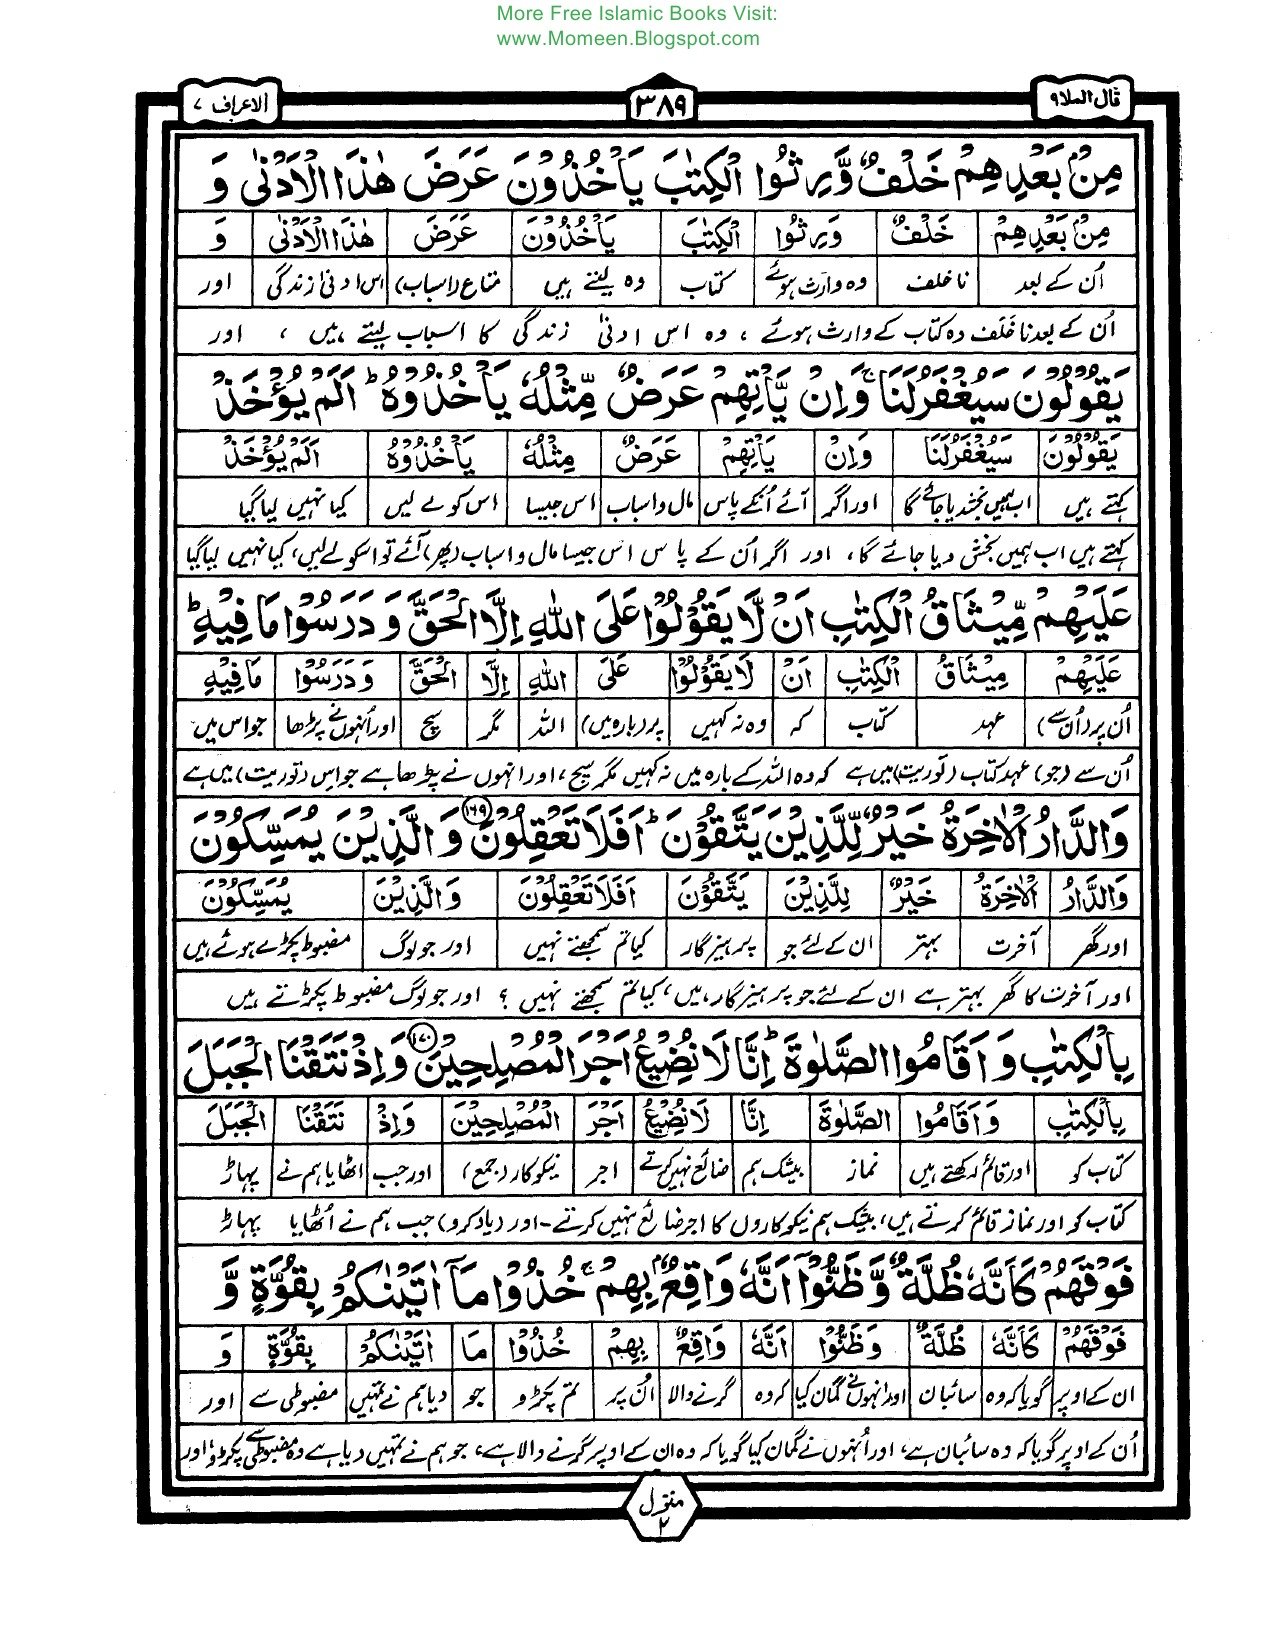 More Free Islamic Books Visit:
www.Momeen.Blogspot.com
قال الملا۹ ۳۸۹ الاعراف ۷
مِنْۢ بَعْدِهِمْ خَلْفٌ وَّرِثُوا الْكِتٰبَ يَاْخُذُوْنَ عَرَضَ هٰذَا الْاَدْنٰى وَ
مِنْۢ بَعْدِهِمْ خَلْفٌ وَرِثُوا الْكِتٰبَ يَاْخُذُوْنَ عَرَضَ هٰذَا الْاَدْنٰى وَ
اُن کے بعد ناخلف وہ وارث ہوئے کتاب وہ لیتے ہیں متاع (اسباب) اس ادنیٰ زندگی اور
اُن کے بعد ناخَلَف وہ کتاب کے وارث ہوئے ، وہ اس ادنیٰ زندگی کا اسباب لیتے ہیں ، اور
يَقُوْلُوْنَ سَيُغْفَرُ لَنَا ۚ وَاِنْ يَّاْتِهِمْ عَرَضٌ مِّثْلُهٗ يَاْخُذُوْهُ ؕ اَلَمْ يُؤْخَذْ
يَقُوْلُوْنَ سَيُغْفَرُ لَنَا وَاِنْ يَاْتِهِمْ عَرَضٌ مِثْلُهٗ يَاْخُذُوْهُ اَلَمْ يُؤْخَذْ
کہتے ہیں اب ہمیں بخشدیا جائے گا اور اگر آئے اُنکے پاس مال واسباب اس جیسا اس کو لے لیں کیا نہیں لیا گیا
کہتے ہیں اب ہمیں بخش دیا جائے گا، اور اگر اُن کے پاس اس جیسا مال و اسباب (پھر) آئے تو اسکو لے لیں، کیا نہیں لیا گیا
عَلَيْهِمْ مِّيْثَاقُ الْكِتٰبِ اَنْ لَّا يَقُوْلُوْا عَلَى اللّٰهِ اِلَّا الْحَقَّ وَ دَرَسُوْا مَا فِيْهِ ؕ
عَلَيْهِمْ مِيْثَاقُ الْكِتٰبِ اَنْ لَا يَقُوْلُوْا عَلَى اللّٰهِ اِلَّا الْحَقَّ وَ دَرَسُوْا مَا فِيْهِ
اُن پر (اُن سے) عہد کتاب کہ وہ نہ کہیں پر (بارہ میں) اللہ مگر سچ اور اُنہوں نے پڑھا جو اس میں
اُن سے (جو) عہد کتاب (توریت) میں ہے کہ وہ اللہ کے بارہ میں نہ کہیں مگر سچ، اور انہوں نے پڑھا ہے جو اس (توریت) میں ہے
وَالدَّارُ الْاٰخِرَةُ خَيْرٌ لِّلَّذِيْنَ يَتَّقُوْنَ ؕ اَفَلَا تَعْقِلُوْنَ ۱۶۹ وَالَّذِيْنَ يُمَسِّكُوْنَ
وَالدَّارُ الْاٰخِرَةُ خَيْرٌ لِلَّذِيْنَ يَتَّقُوْنَ اَفَلَا تَعْقِلُوْنَ وَالَّذِيْنَ يُمَسِّكُوْنَ
اور گھر آخرت بہتر ان کے لئے جو پرہیزگار کیا تم سمجھتے نہیں اور جو لوگ مضبوط پکڑے ہوئے ہیں
اور آخرت کا گھر بہتر ہے ان کے لئے جو پرہیزگار ہیں، کیا تم سمجھتے نہیں ؟ اور جو لوگ مضبوط پکڑتے ہیں
بِالْكِتٰبِ وَ اَقَامُوا الصَّلٰوةَ ؕ اِنَّا لَا نُضِيْعُ اَجْرَ الْمُصْلِحِيْنَ ۱۷۰ وَاِذْ نَتَقْنَا الْجَبَلَ
بِالْكِتٰبِ وَ اَقَامُوا الصَّلٰوةَ اِنَّا لَا نُضِيْعُ اَجْرَ الْمُصْلِحِيْنَ وَاِذْ نَتَقْنَا الْجَبَلَ
کتاب کو اور قائم رکھتے ہیں نماز بیشک ہم ضائع نہیں کرتے اجر نیکوکار (جمع) اور جب اٹھایا ہم نے پہاڑ
کتاب کو اور نماز قائم کرتے ہیں، بیشک ہم نیکوکاروں کا اجر ضائع نہیں کرتے۔ اور (یاد کرو) جب ہم نے اُٹھایا پہاڑ
فَوْقَهُمْ كَاَنَّهٗ ظُلَّةٌ وَّظَنُّوْۤا اَنَّهٗ وَاقِعٌۢ بِهِمْ ۚ خُذُوْا مَاۤ اٰتَيْنٰكُمْ بِقُوَّةٍ وَّ
فَوْقَهُمْ كَاَنَّهٗ ظُلَّةٌ وَظَنُّوْا اَنَّهٗ وَاقِعٌ بِهِمْ خُذُوْا مَا اٰتَيْنٰكُمْ بِقُوَّةٍ وَ
ان کے اوپر گویا کہ وہ سائبان اور انہوں نے گمان کیا کہ وہ گرنے والا اُن پر تم پکڑو جو دیا ہم نے تمہیں مضبوطی سے اور
اُن کے اوپر گویا کہ وہ سائبان ہے، اور اُنہوں نے گمان کیا گویا کہ وہ ان کے اوپر گرنے والا ہے، جو ہم نے تمہیں دیا ہے وہ مضبوطی سے پکڑو، اور
منزل ۲